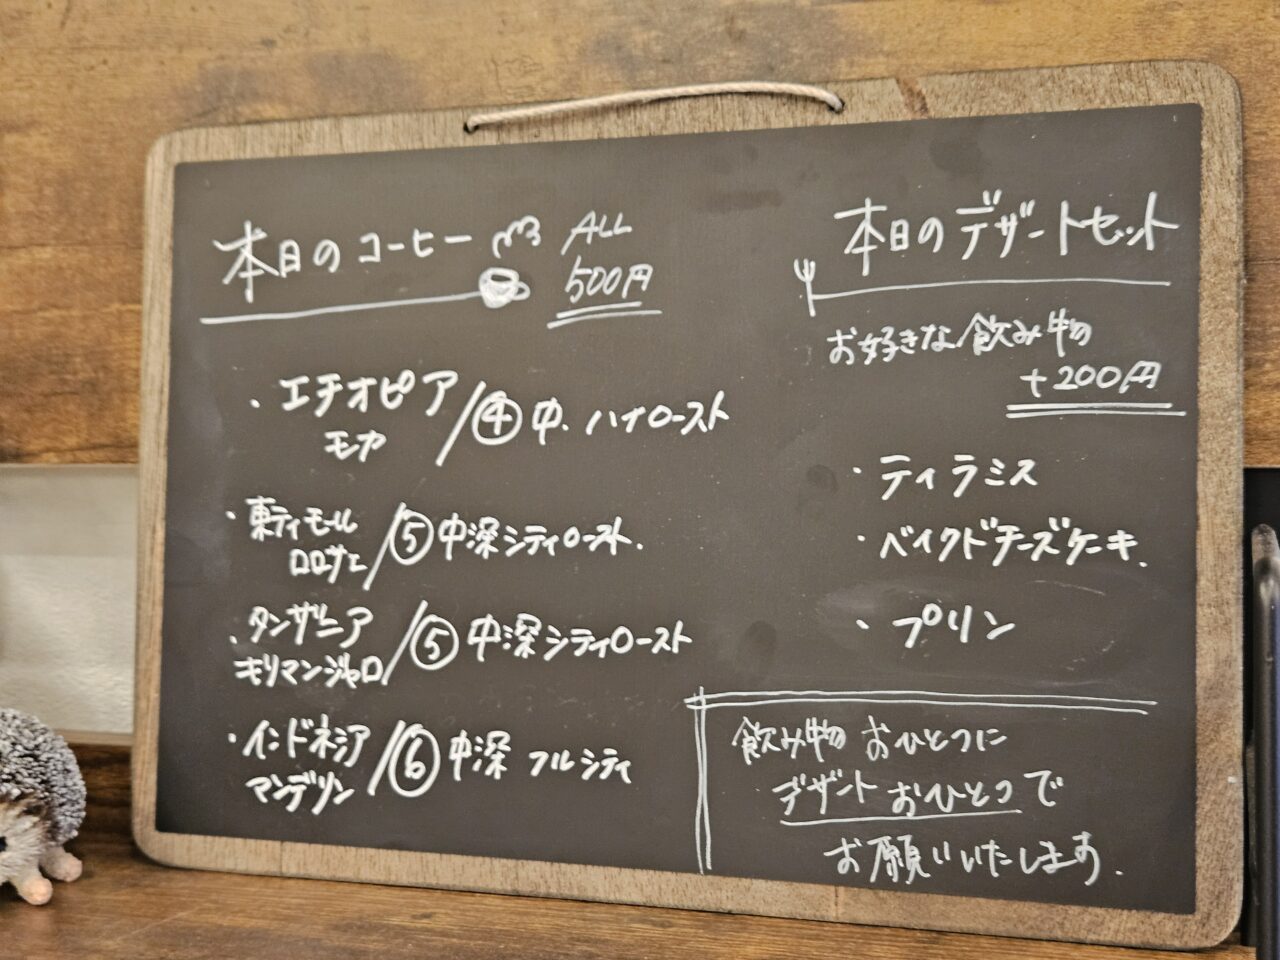 本日のコーヒー
ALL
500円
・エチオピア
モカ
/④中.ハイロースト
・東ティモール
ロロサエ
/⑤中深シティロースト.
・タンザニア
キリマンジャロ
/⑤中深シティロースト
・インドネシア
マンデリン
/⑥中深 フルシティ
本日のデザートセット
お好きな飲み物
+200円
・ティラミス
・ベイクドチーズケーキ.
・プリン
飲み物おひとつに
デザートおひとつで
お願いいたします.